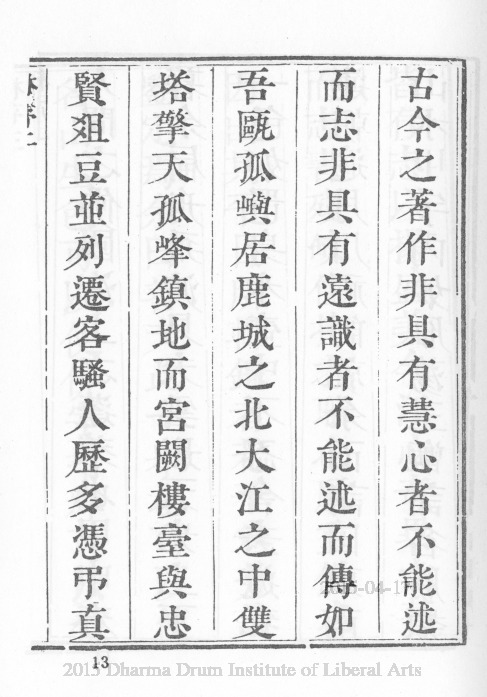 古今之著作非具有慧心者不能述
而志非具有遠識者不能述而傳如
吾甌孤嶼居鹿城之北大江之中雙
塔擎天孤峰鎮地而宮闕樓臺與忠
賢爼豆並列遷客騷人歷多憑弔真
13
2015 Dharma Drum Institute of Liberal Arts